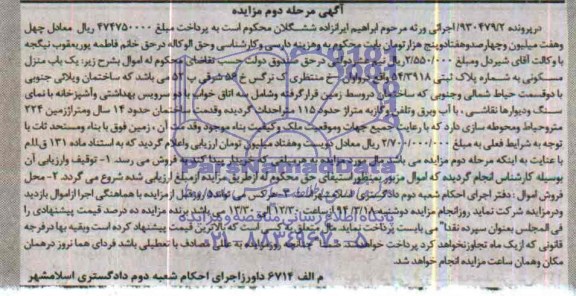 آگهی مرحله دوم مزایده
درپرونده ۹۳۰۴۷۹/۲ اجرائی ورثه مرحوم ابراهیم ایرانزاده ششگلان محکوم است به پرداخت مبلغ ۴۷۴۷۵۰۰۰۰ ریال معادل چهل
وهفت میلیون وچهارصدوهفتادوپنج هزارتومان بابت محکوم به وهزینه دادرسی وکارشناسی وحق الوکاله درحق خانم فاطمه پوریعقوب نیگجه
با وکالت آقای شیردل ومبلغ ۲/۵۵۰/۰۰۰ ریال نیم عشر دولتی درحق صندوق دولت حسب تقاضای محکوم له اموال بشرح زیر: یک باب منزل
مسکونی به شماره پلاک ثبتی ۵۴/۳۹۱۸ واقع خ منتظری ک نرگس خ شرقی پ ۵۲ می باشد که ساختمان ویلائی جنوبی
با دوقسمت حیاط شمالی وجنوبی که ساختمان در وسط زمین قرارگرفته وشامل سه اتاق خواب با دو سرویس بهداشتی وآشپزخانه با نمای
سنگ ودیوارها نقاشی، با آب وبرق وتلفن وگازبه متراژ حدود ۱۱۵ متر احداث گردیده وقدمت ساختمان حدود ۱۴ سال ومتراژزمین ۲۲۴
متروحیاط ومحوطه سازی دارد که با رعایت جمیع جهات وموقعیت ملک وکیفیت بناء موجود وقدمت آن، زمین فوق با بناء ومستحدثات با
توجه به شرایط فعلی به مبلغ ۲/۷۰۰/۰۰۰/۰۰۰ ریال معادل دویست وهفتاد میلیون تومان ارزیابی واعلام گردید که به استناد ماده ۱۳۱ ق.ا.ا.م
با عنایت به اینکه مرحله دوم مزایده می باشد مال مورد مزایده به هرمیزانی که خریدار پیدا کند به فروش می رسد. ۱- توقیف وارزیابی آن
بوسیله کارشناس انجام گردیده که اموال مزبور از طریق مزایده از مبلغ ارزیابی شده شروع می گردد. ۲- محل
فروش اموال: دفتر اجرای احکام شعبه دوم دادگستری اسلامشهر است ۳- هرکس می تواند روز قبل ازمزایده با هماهنگی اجرا ازاموال بازدید
ودرمزایده شرکت نماید روزانجام مزایده دوشنبه ساعت ۱۲/۳۰ الی می باشد برنده مزایده ده درصد قیمت پیشنهادی را
فی المجلس بعنوان سپرده نقدا" می بایست پرداخت نماید مال متعلق به کسی است که بالاترین قیمت پیشنهاد کرده است وبقیه بها درفرجه
قانونی که ازیک ماه تجاوزنخواهد کرد پرداخت خواهد شد. چنانچه روز مزایده به عللی مصادف با تعطیلی باشد فردای همان روز درهمان
مکان وهمان ساعت مزایده انجام خواهد شد.
م الف ۶۷۱۴ داورزاجرای احکام شعبه دوم دادگستری اسلامشهر